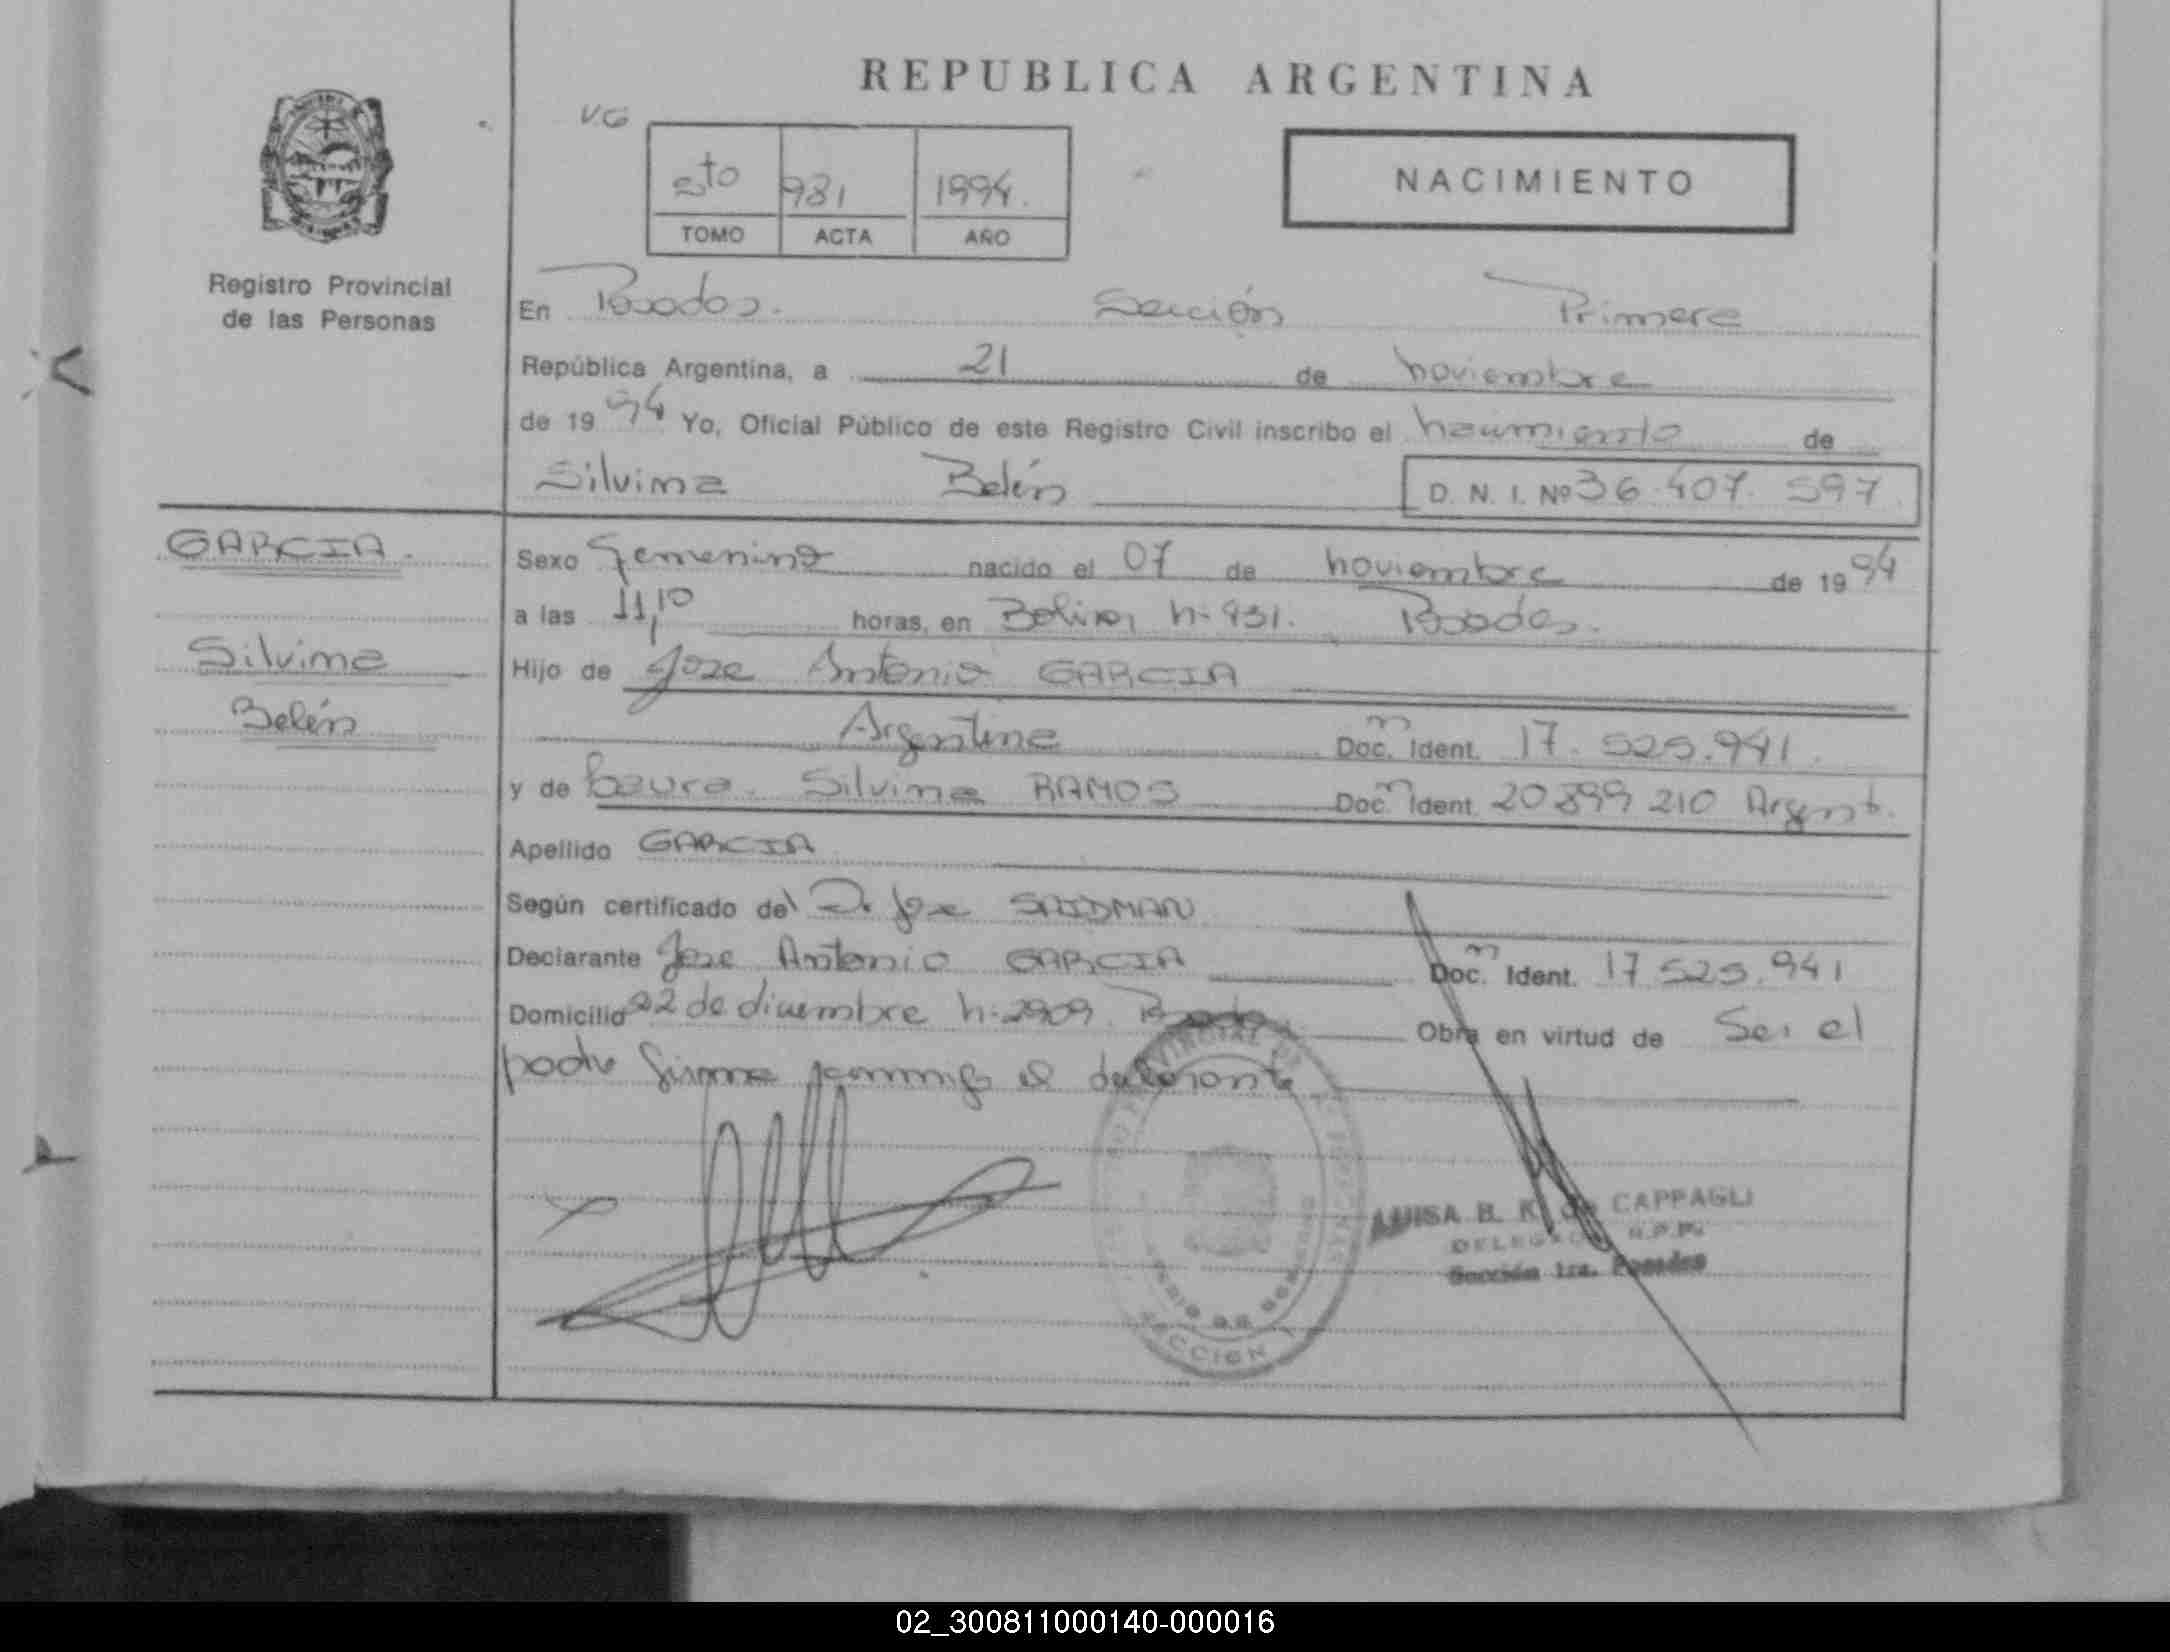 REPUBLICA ARGENTINA
V.G
5to 981 1994.
TOMO ACTA AÑO
NACIMIENTO
Registro Provincial
de las Personas
En Posadas. Sección Primera
República Argentina, a 21 de noviembre
de 1994 Yo, Oficial Público de este Registro Civil inscribo el nacimiento de
Silvina Belén D. N. I. Nº 36.407.597.
GARCIA.
Silvina
Belén
Sexo femenino nacido el 07 de noviembre de 1994
a las 11,10 horas, en Bolivar n- 931. Posadas.
Hijo de Jose Antonio GARCIA
Argentina Doc. Ident. 17.525.941.
y de Laura Silvina RAMOS Doc. Ident. 20 899 210 Argent.
Apellido GARCIA
Según certificado del D. Jose SAIDMAN
Declarante Jose Antonio GARCIA Doc. Ident. 17.525.941
Domicilio 22 de diciembre n- 2909. Posadas Obra en virtud de Ser el
padre firma conmigo el declarante
LUISA B. K. de CAPPAGLI
DELEGADA R.P.P.
Sección 1ra. Posadas
SECCION 1
02_300811000140-000016